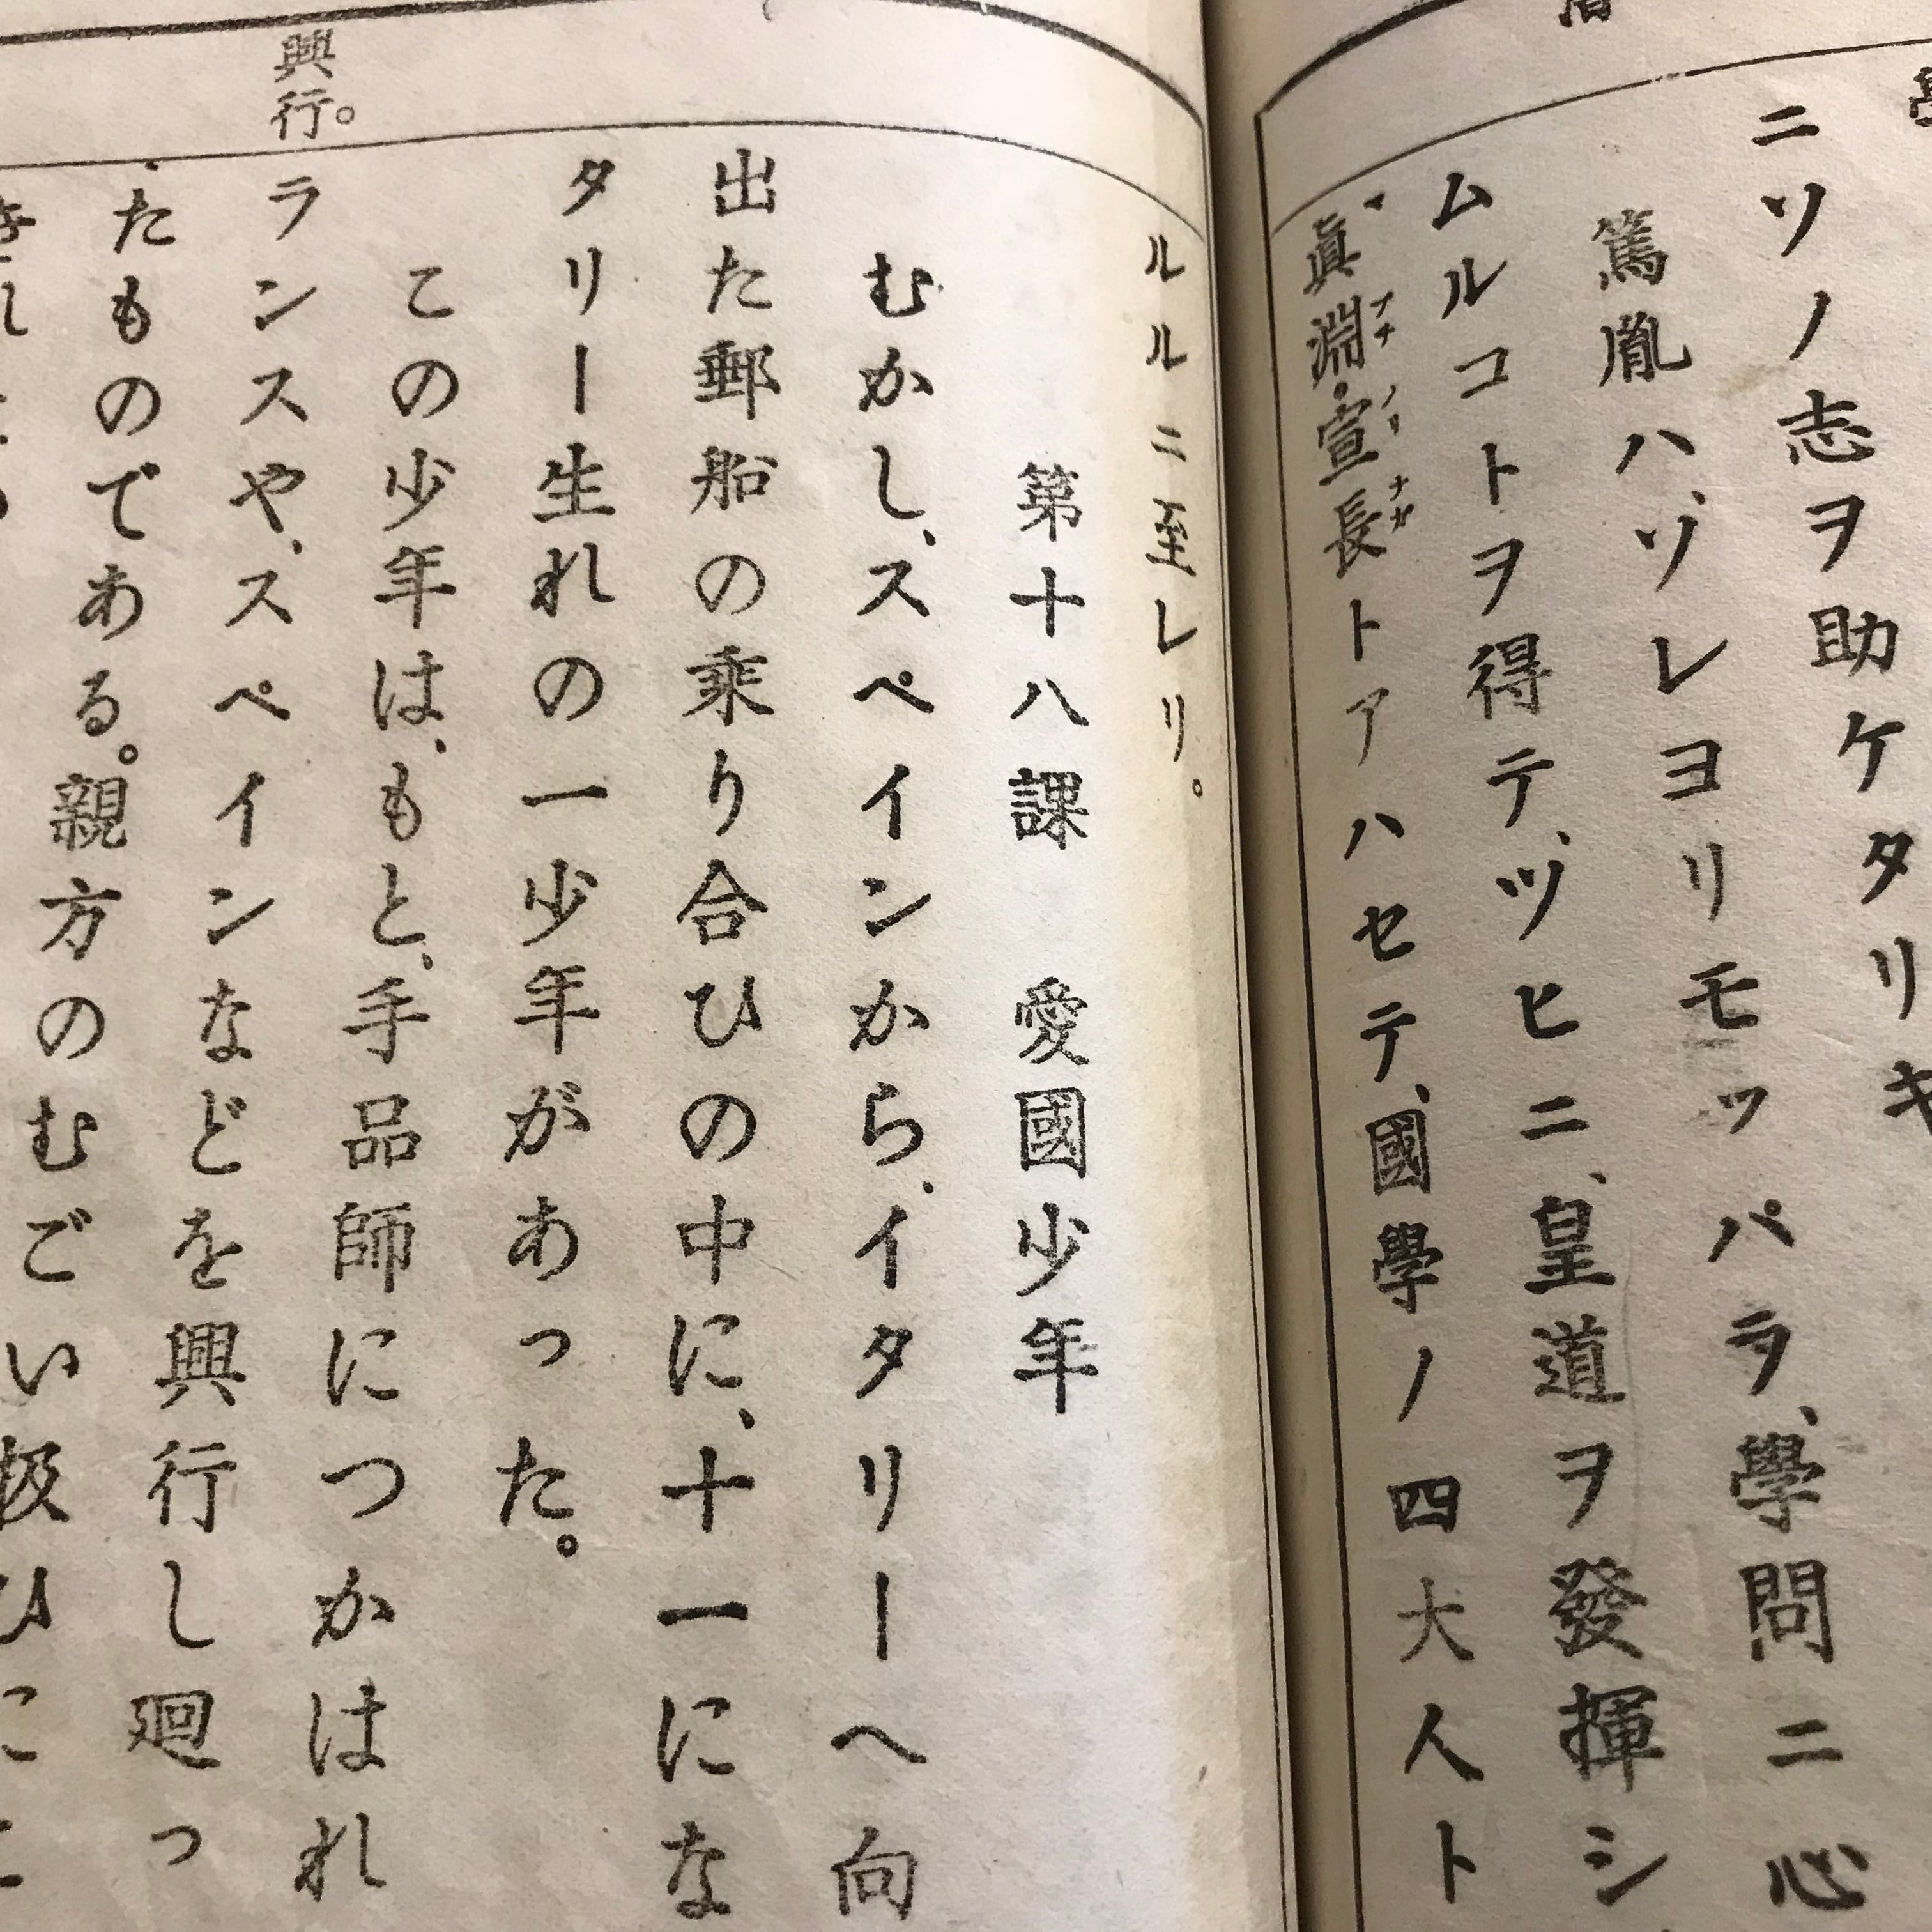 ニソノ志ヲ助ケタリキ
篤胤ハ、ゾレヨリモッパラ、學問ニ心
ムルコトヲ得テ、ツヒニ、皇道ヲ發揮シ
眞淵・宣長トアハセテ、國學ノ四大人ト
フチ
ノリ
ナガ
ルルニ至レリ。
第十八課 愛國少年
むかし、スペインから、イタリーへ向
出た郵船の乘り合ひの中に、十一にな
タリー生れの一少年があった。
この少年は、もと、手品師につかはれ
興行。
ランスや、スペインなどを興行し廻っ
たものである。親方のむごい扱ひに